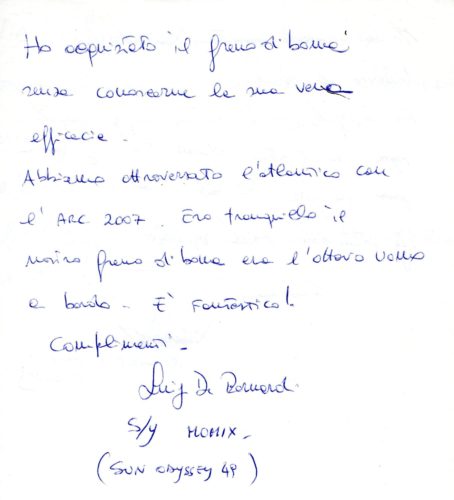 Ho acquistato il freno di boma
senza conoscerne la sua vera
efficacia.
Abbiamo attraversato l'atlantico con
l'ARC 2007. Ero tranquillo il
nostro freno di boma era l'ottavo uomo
a bordo - È Fantastico!
Complimenti -
Luigi De Bernardi
S/Y MOMIX -
(SUN ODYSSEY 49)